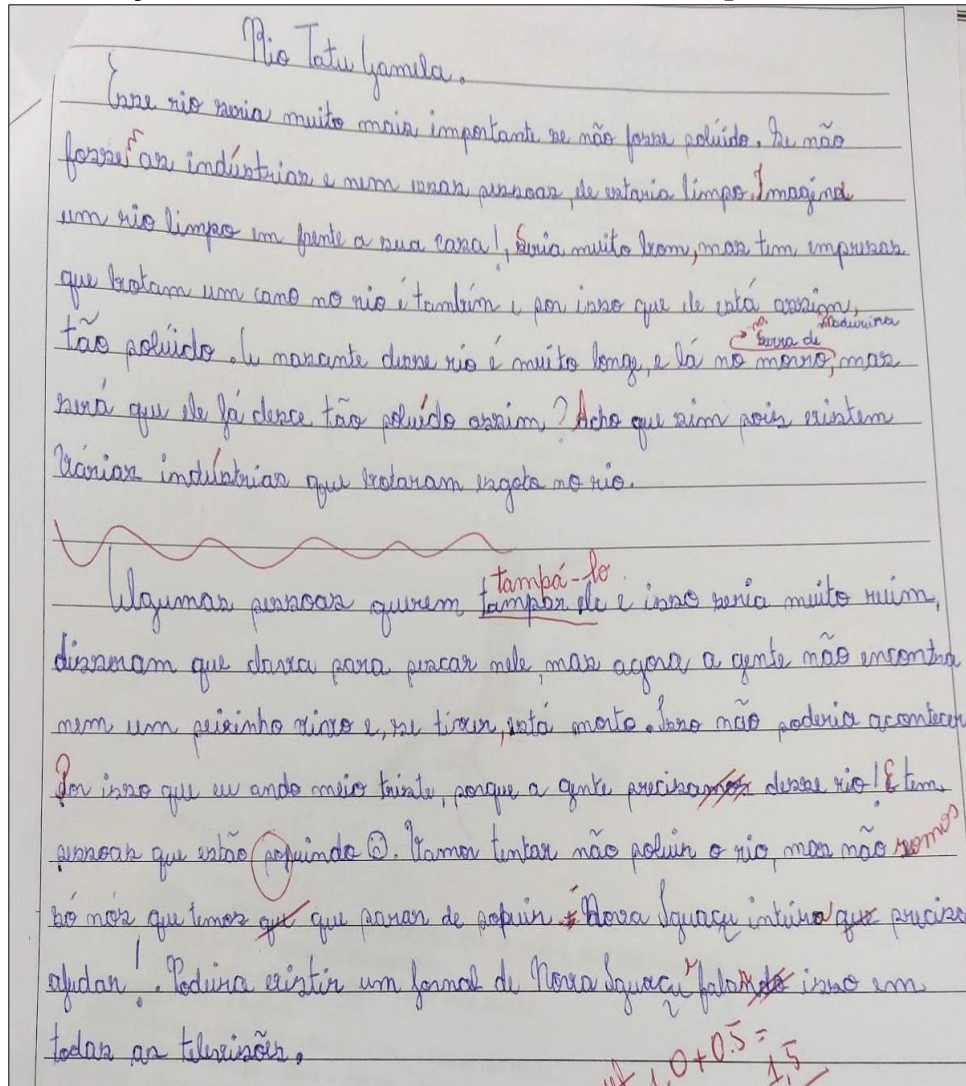 Rio Tatu Gamela.
Esse rio seria muito mais importante se não fosse polúido. Se não
fosse as indústrias e nem essas pessoas, ele estaria limpo. Imagina
um rio limpo em frente a sua casa!, Seria muito bom, mas tem empresas
que botam um cano no rio é também e por isso que ele está assim,
na Serra de Madureira
tão polúido. A nascente desse rio é muito longe, e lá no morro, mas
será que ele já desce tão poluído assim? Acho que sim pois existem
Várias indústrias que botaram esgoto no rio.
tampá-lo
Algumas pessoas querem tampar ele e isso seria muito ruim,
disseram que dava para pescar nele, mas agora a gente não encontra
nem um peixinho vivo e, se tiver, está morto. Isso não poderia acontecer
Por isso que eu ando meio triste, porque a gente precisamos desse rio! E tem
pessoas que estão popuindo ☹. Vamos tentar não poluir o rio, mas não somos
só nós que temos que que parar de popuir. Nova Iguaçu inteira que precisa
ajudar!. Poderia existir um jornal de Nova Iguaçu falando isso em
todas as televisões.
1,0+0.5=
1,5